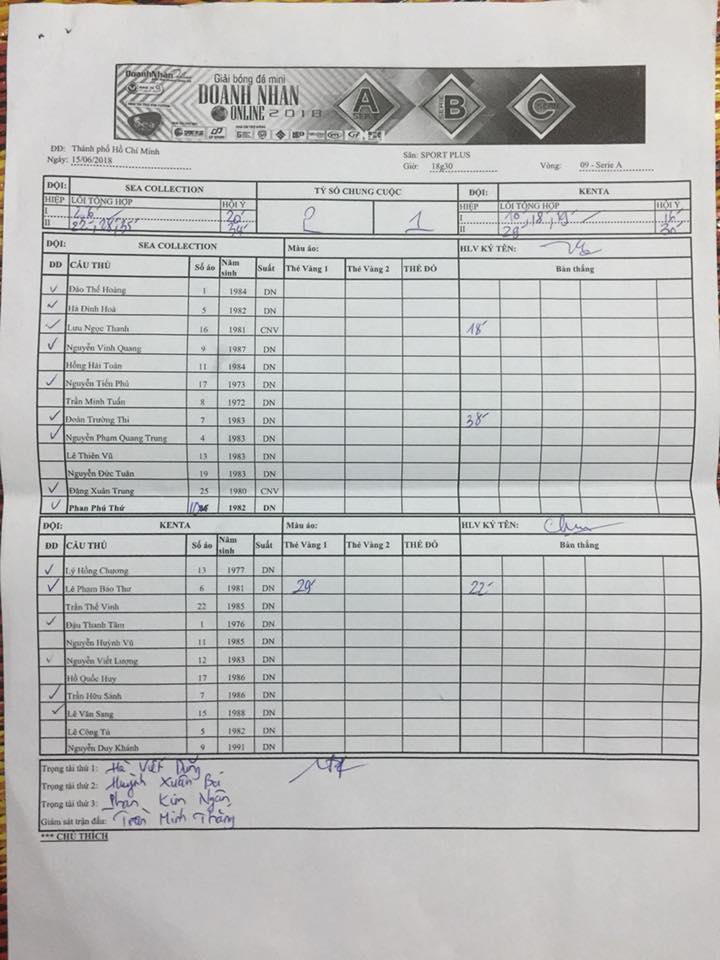 DoanhNhan
Giải bóng đá mini
DOANH NHÂN
ONLINE 2018
A
SERIE
B
SERIE
C
SERIE
ĐĐ: Thành phố Hồ Chí Minh
Sân: SPORT PLUS
Ngày: 15/06/2018 Giờ: 18g30 Vòng: 09 - Serie A
ĐỘI: SEA COLLECTION TỶ SỐ CHUNG CUỘC ĐỘI: KENTA
HIỆP LỖI TỔNG HỢP HỘI Ý 2 1 HIỆP LỖI TỔNG HỢP HỘI Ý
I I
II II
ĐỘI: SEA COLLECTION Màu áo: HLV KÝ TÊN:
DD CẦU THỦ Số áo Năm sinh Suất Thẻ Vàng 1 Thẻ Vàng 2 THẺ ĐỎ Bàn thắng
✓ Đào Thế Hoàng 1 1984 DN
✓ Hà Đình Hoà 5 1982 DN
✓ Lưu Ngọc Thanh 16 1981 CNV 18'
✓ Nguyễn Vinh Quang 9 1987 DN
Hồng Hải Toàn 11 1984 DN
✓ Nguyễn Tiến Phú 17 1973 DN
Trần Minh Tuấn 8 1972 DN
✓ Đoàn Trường Thi 7 1983 DN 38'
✓ Nguyễn Phạm Quang Trung 4 1983 DN
Lê Thiên Vũ 13 1983 DN
Nguyễn Đức Tuân 19 1983 DN
✓ Đặng Xuân Trung 25 1980 CNV
✓ Phan Phú Thứ 1982 DN
ĐỘI: KENTA Màu áo: HLV KÝ TÊN:
DD CẦU THỦ Số áo Năm sinh Suất Thẻ Vàng 1 Thẻ Vàng 2 THẺ ĐỎ Bàn thắng
✓ Lý Hồng Chương 13 1977 DN
✓ Lê Phạm Bảo Thư 6 1981 DN 29' 22'
Trần Thế Vinh 22 1985 DN
✓ Đậu Thanh Tâm 1 1976 DN
Nguyễn Huỳnh Vũ 11 1985 DN
✓ Nguyễn Viết Lượng 12 1983 DN
Hồ Quốc Huy 17 1986 DN
✓ Trần Hữu Sành 7 1986 DN
✓ Lê Văn Sang 15 1988 DN
Lê Công Tú 5 1982 DN
Nguyễn Duy Khánh 9 1991 DN
Trọng tài thứ 1: Hà Việt Dũng
Trọng tài thứ 2: Huỳnh Xuân
Trọng tài thứ 3: Phan Kim Ngân
Giám sát trận đấu: Trần Minh Thắng
*** CHÚ THÍCH